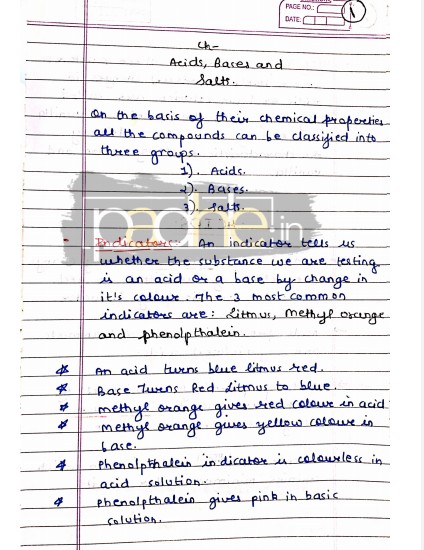 PAGE NO.: 1
DATE:
Ch-
Acids, Bases and
Salts.
On the basis of their chemical properties
all the compounds can be classified into
three groups.
1). Acids.
2). Bases.
3). Salts.
padhe.in
- Indicators:- An indicator tells us
whether the substance we are testing
is an acid or a base by change in
it's colour. The 3 most common
indicators are: Litmus, Methyl orange
and phenolpthalein.
An acid turns blue litmus red.
Base Turns Red Litmus to blue.
methyl orange gives red colour in acid
methyl orange gives yellow colour in
base.
Phenolpthalein indicator is colourless in
acid solution.
Phenolpthalein gives pink in basic
solution.